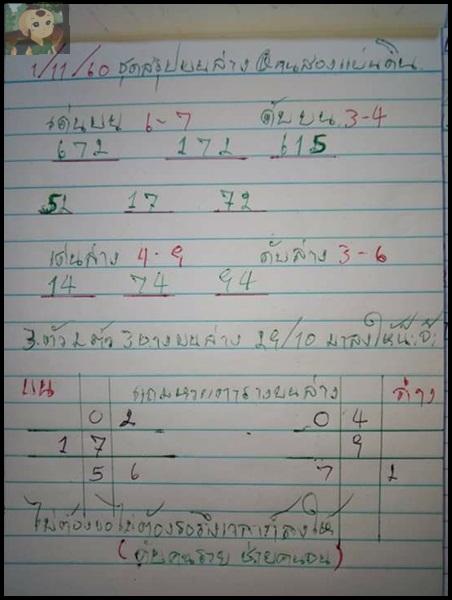 1/11/60 ชุดสรุปบนล่าง @คนสองแผ่นดิน
เด่นบน 6-7 ดับบน 3-4
672 172 615
52 17 72
เด่นล่าง 4-9 ดับล่าง 3-6
14 74 94
3 ตัว 2 ตัว บนล่าง 29/10 มาลงให้
บน ตารางบนล่าง ล่าง
0 2 0 4
1 7 9
5 6 7 2
ไม่ต้องขอ ไม่ต้องรอถึงเวลาก็ลงให้
(ดับคนรวย ช่วยคนจน)